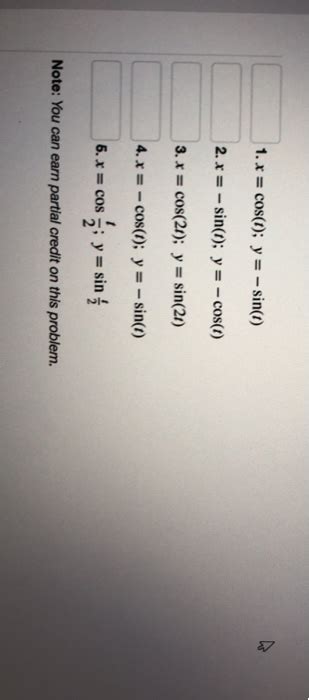 1. x = cos(t); y = − sin(t)
2. x = − sin(t); y = − cos(t)
3. x = cos(2t); y = sin(2t)
4. x = − cos(t); y = − sin(t)
5. x = cos t/2; y = sin t/2
Note: You can earn partial credit on this problem.